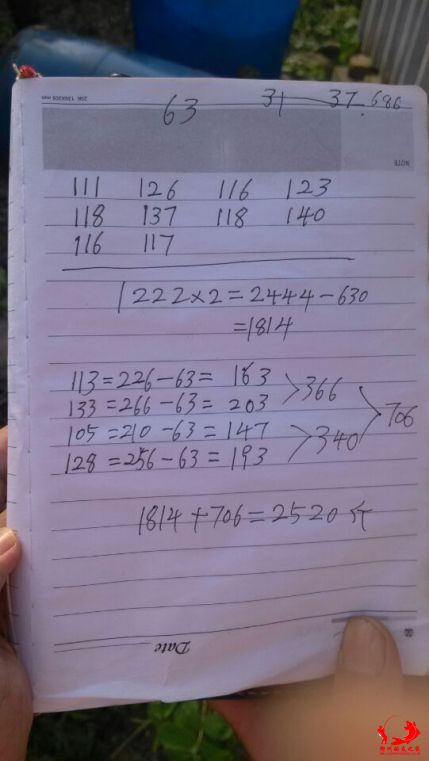 63 31—37.686
NOTE
111 126 116 123
118 137 118 140
116 117
1222×2=2444-630
=1814
113=226-63=163 >366
133=266-63=203
>706
105=210-63=147 >340
128=256-63=193
1814+706=2520斤
Date